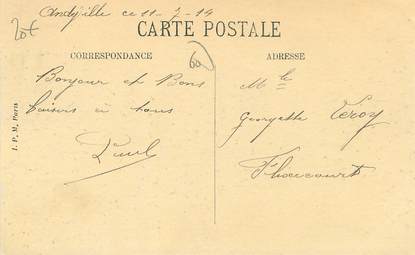 20€
Andyille ce 11-7-14
CARTE POSTALE
CORRESPONDANCE
ADRESSE
60
Bonjour et Bons
baisers à tous
Paul
Mlle
Georgette Leroy
I. P. M, Paris